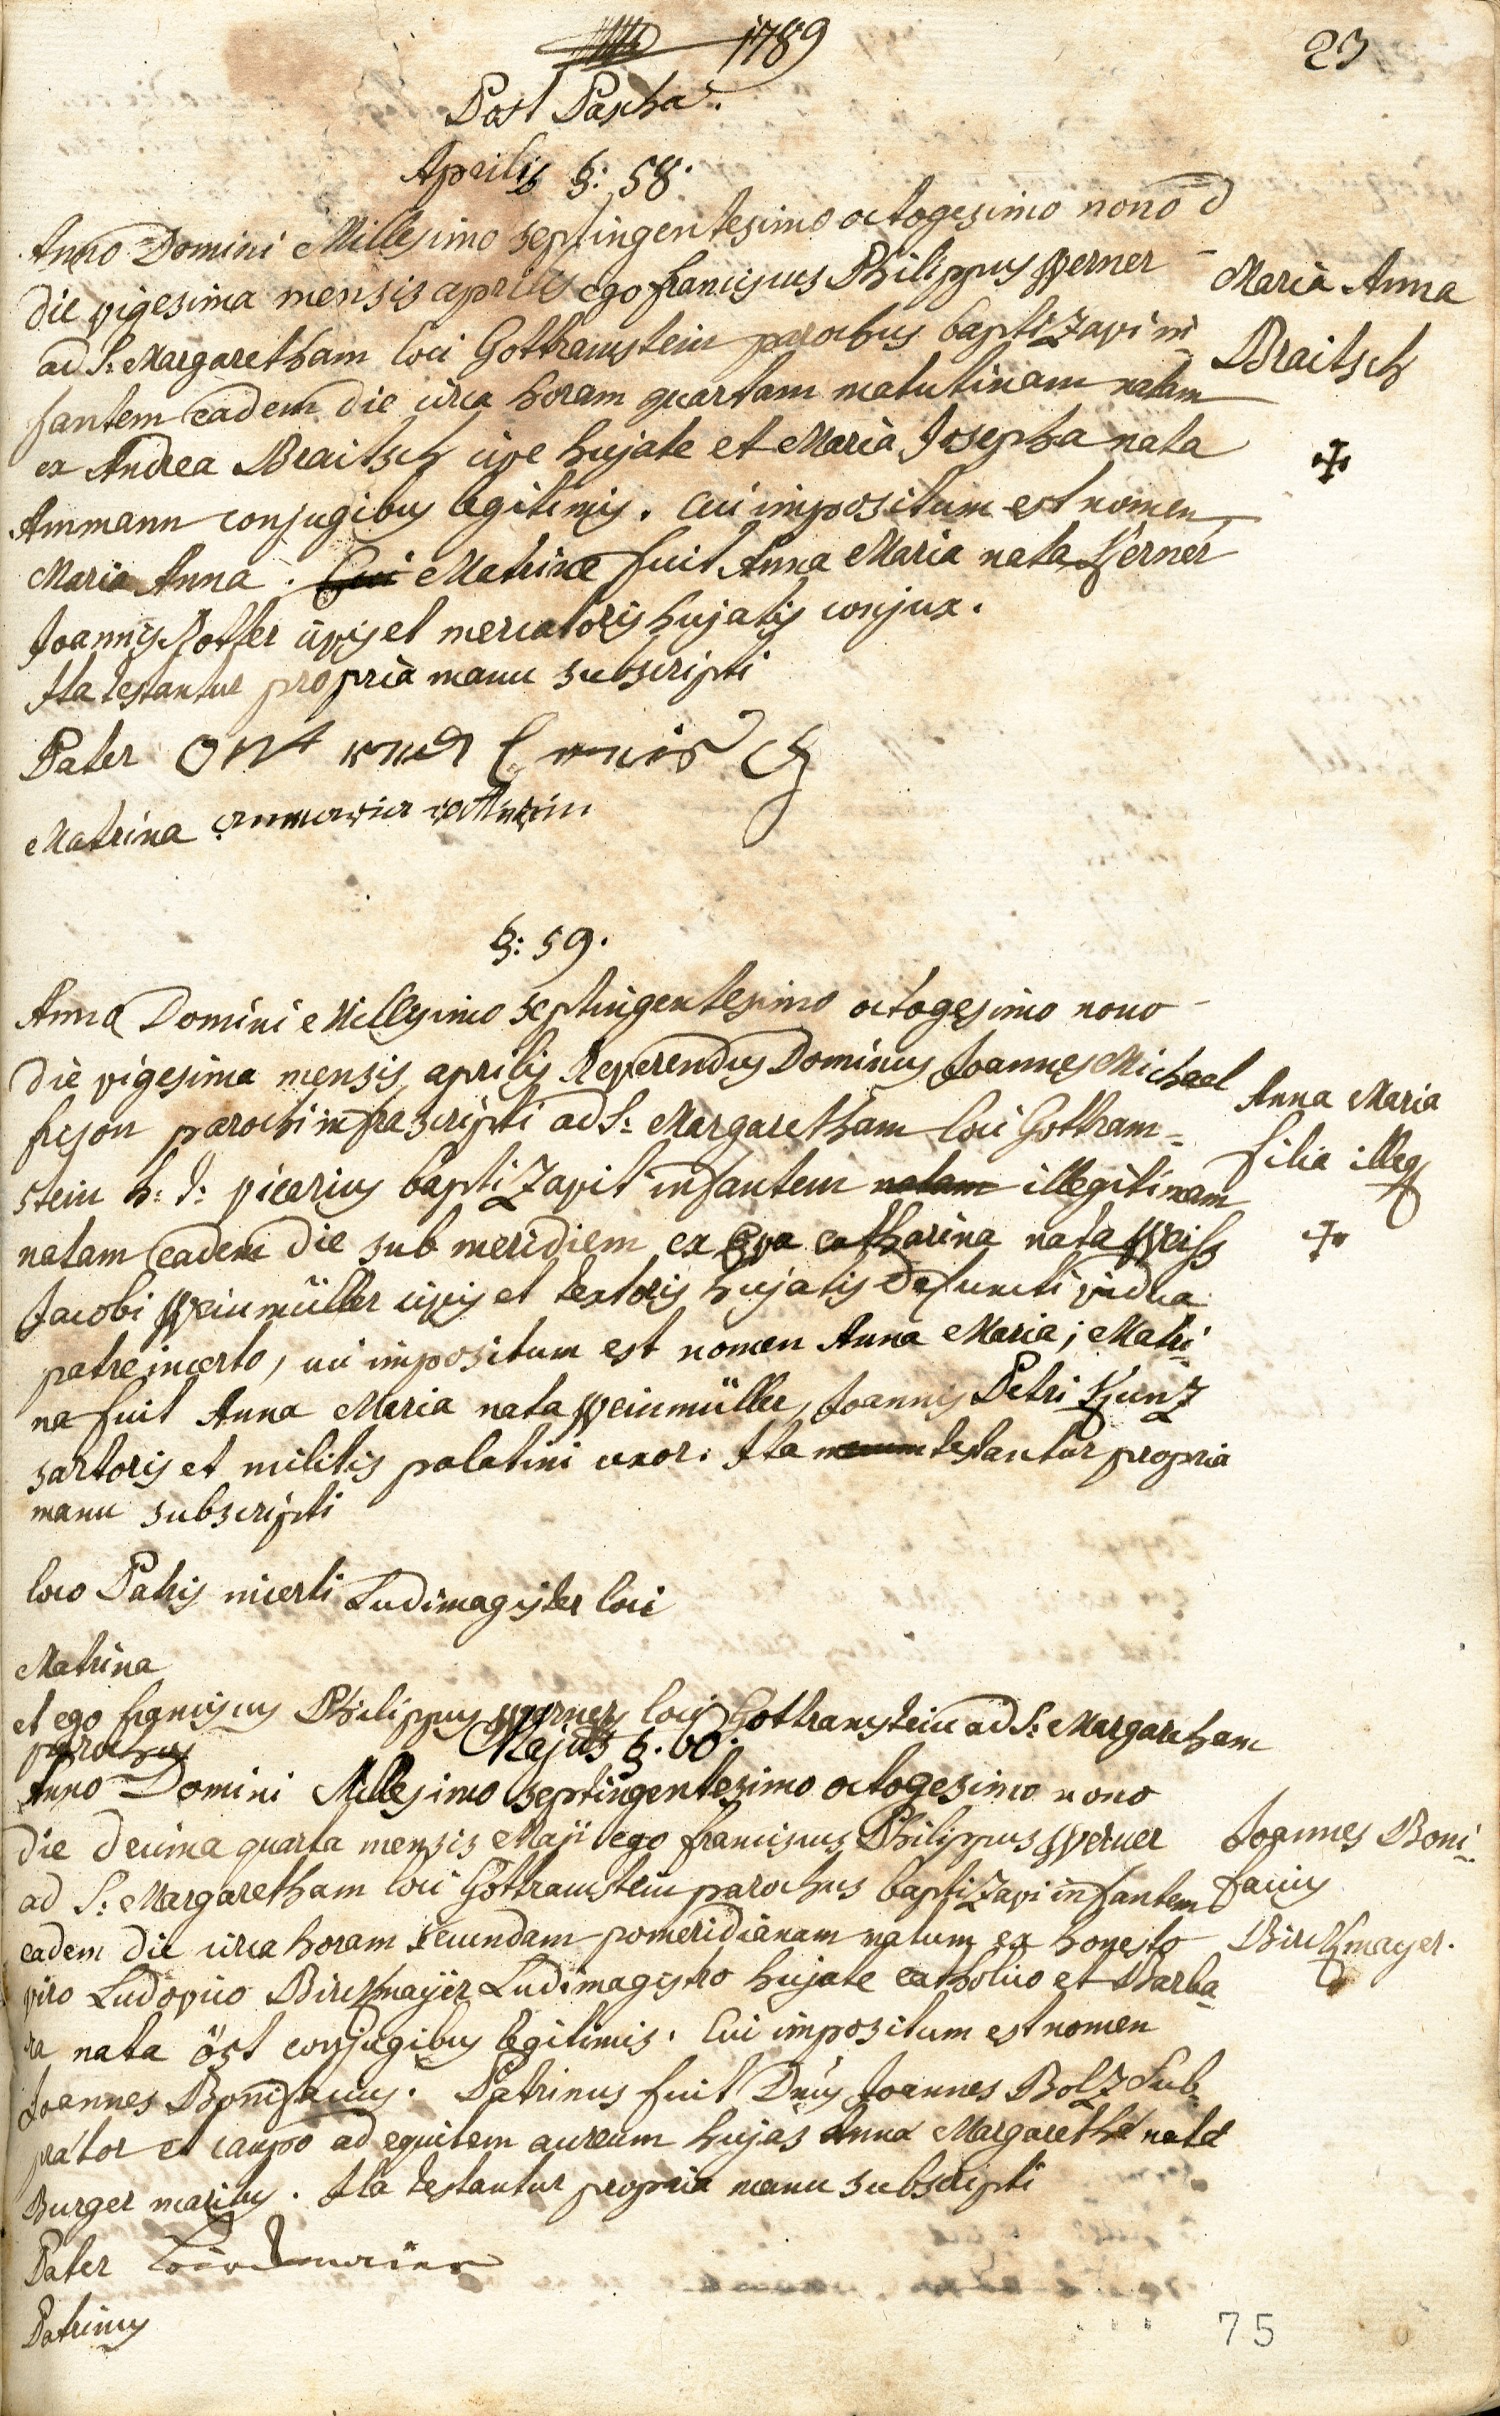 1789
23
Post Pascha.
Aprilis §: 58.
Anno Domini Millesimo septingentesimo octogesimo nono
die vigesima mensis aprilis ego franciscus Philippus Werner
ad S: Margaretham loci Gottramstein parochus baptizavi in
fantem eadem die circa horam quartam matutinam natam
ex Andrea Braitsch cive hujate et Maria Josepha nata
Ammann conjugibus legitimis. Cui impositum est nomen
Maria Anna. Cui Matrina fuit Anna Maria nata Kerner
Joannis civis et mercatoris hujatis conjux.
Ita testantur propria manu subscripti
Pater
Matrina
Maria Anna
Braitsch
§: 59.
Anno Domini Millesimo septingentesimo octogesimo nono
die vigesima mensis aprilis Reverendus Dominus Joannes Michael
parochi infrascripti ad S: Margaretham loci Gottram-
stein h: t: vicarius baptizavit infantem natam illegitimam
natam eadem die sub meridiem ex Eva catharina nata Weiss
Jacobi Weinmüller civis et textoris hujatis defuncti vidua
patre incerto, cui impositum est nomen Anna Maria; Matri-
na fuit Anna Maria nata Weinmüller, Joannis Petri Kunz
sartoris et militis palatini uxor. Ita testantur propria
manu subscripti
loco Patris incerti Ludimagister loci
Matrina
et ego franciscus Philippus Werner loci Gottramstein ad S: Margaretham
parochus
Anna Maria
filia illeg
Majus §. 60.
Anno Domini Millesimo septingentesimo octogesimo nono
die decima quarta mensis Maji ego franciscus Philippus Werner
ad S: Margaretham loci Gottramstein parochus baptizavi infantem
eadem die circa horam secundam pomeridianam natum ex honesto
viro Ludovico Birckmayer Ludimagistro hujate catholico et Barba-
ra nata öst conjugibus legitimis. Cui impositum est nomen
Joannes Bonifacius. Patrinus fuit Dnus Joannes Bolz Sub-
et caupo ad equitem aureum hujas Anna Margaretha nata
Burger maritus. Ita testantur propria manu subscripti
Pater
Patrinus
Joannes Boni-
facius
Birckmayer.
75